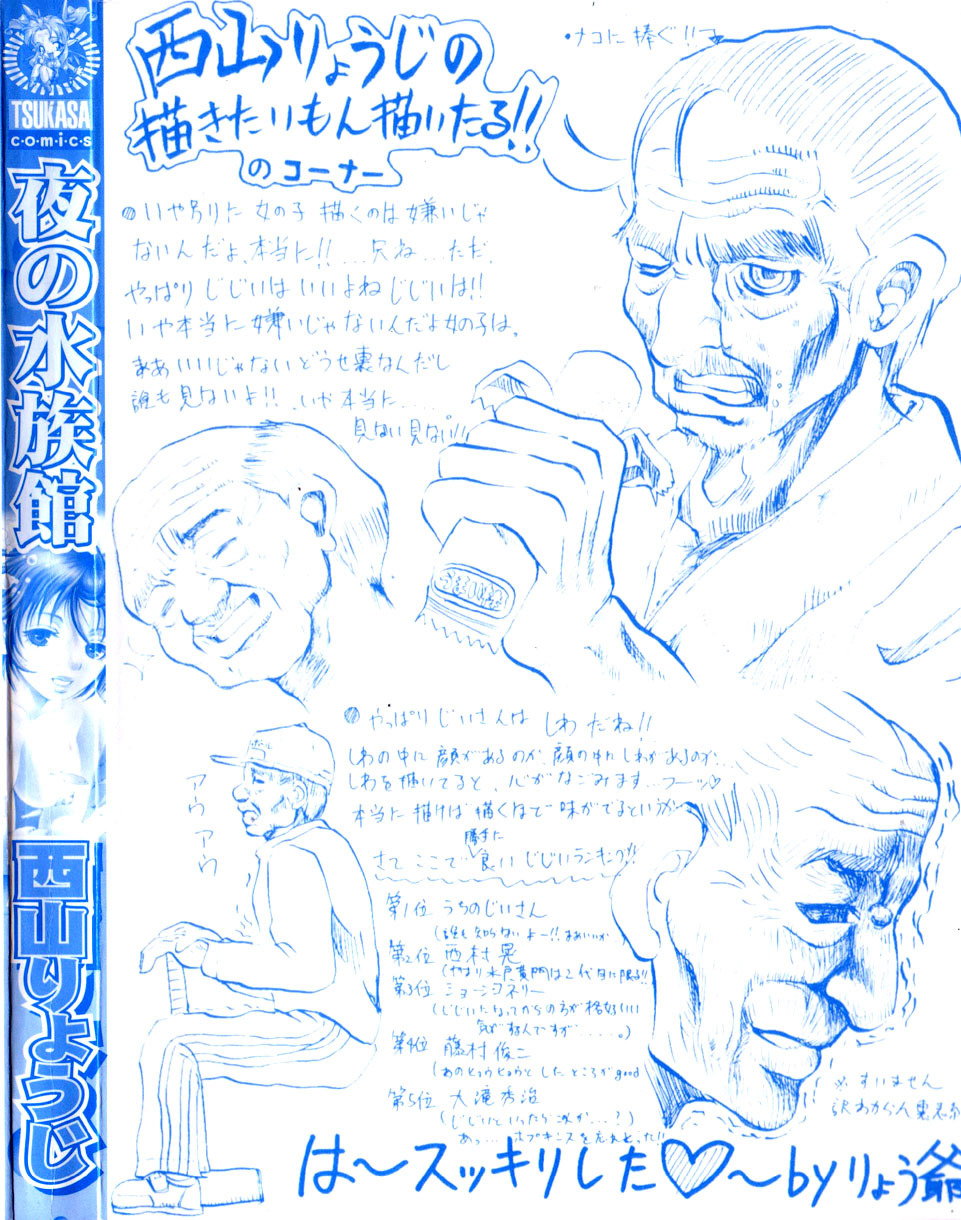 TSUKASA
COMICS
夜の水族館
西山りょうじ
西山りょうじの
描きたいもん描いたる!!
のコーナー
・ナコに捧ぐ!!
いや別に女の子描くのは嫌いじゃ
ないんだよ、本当に!!...只ね...ただ、
やっぱりじじいはいいよねじじいは!!
いや本当に嫌いじゃないんだよ女の子は。
まあいいじゃないどうせ裏なんだし
誰も見ないよ!!、いや本当に.....
見ない見ない!!
やっぱりじいさんはしわだね!!
しわの中に顔があるのか、顔の中にしわがあるのか...
しわを描いてると、心がなごみます...フーッ♡
本当に描けば描くほど味がでるというか
勝手に
さてここで良いじじいランキング!!
第1位 うちのじいさん
(誰も知らないよー!!まあいいか
第2位 西村晃
(やはり水戸黄門は2代目に限る!!
第3位 ショーンコネリー
(じじいになってからの方が格好いい
気がするんですが.....。)
第4位 藤村俊二
(あのヒョウヒョウとしたところがgood
第5位 大滝秀治
(じじいといったらこの人か...?)
あっ...ホプキンスを忘れとった!!
アウアウ
※すいません
訳わからん裏表紙
は〜スッキリした♡〜byりょう爺